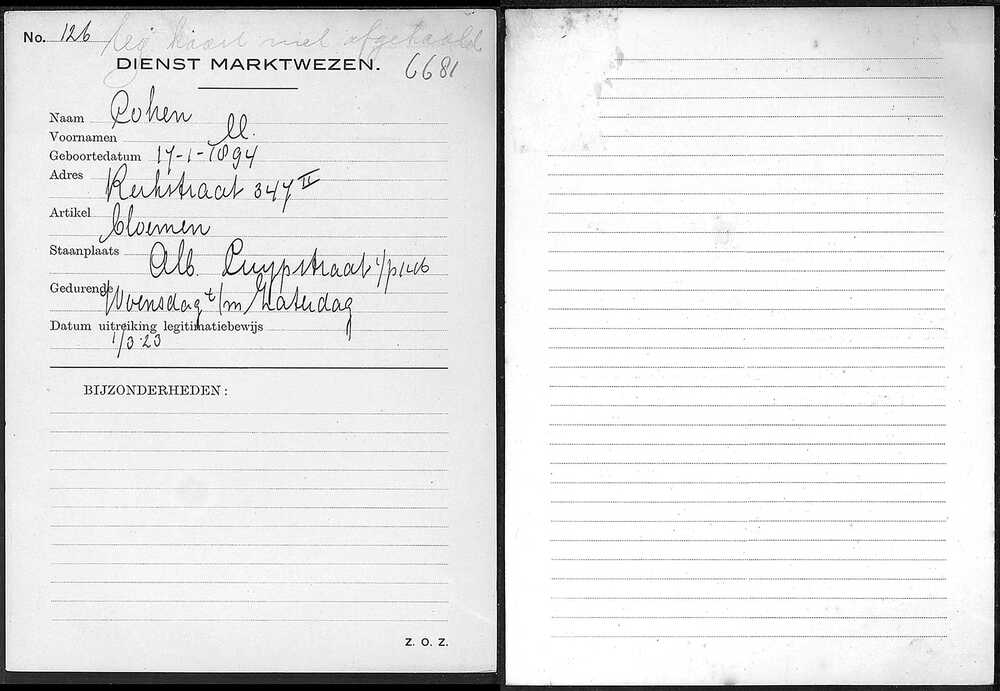 No. 126 Leg kaart niet afgehaald
DIENST MARKTWEZEN. 6681
Naam Cohen
Voornamen M.
Geboortedatum 17-1-1894
Adres Kerkstraat 347 II
Artikel bloemen
Staanplaats Alb. Cuypstraat t/p 146
Gedurende Woensdag t/m Zaterdag
Datum uitreiking legitimatiebewijs
1/3 23
BIJZONDERHEDEN:
Z. O. Z.